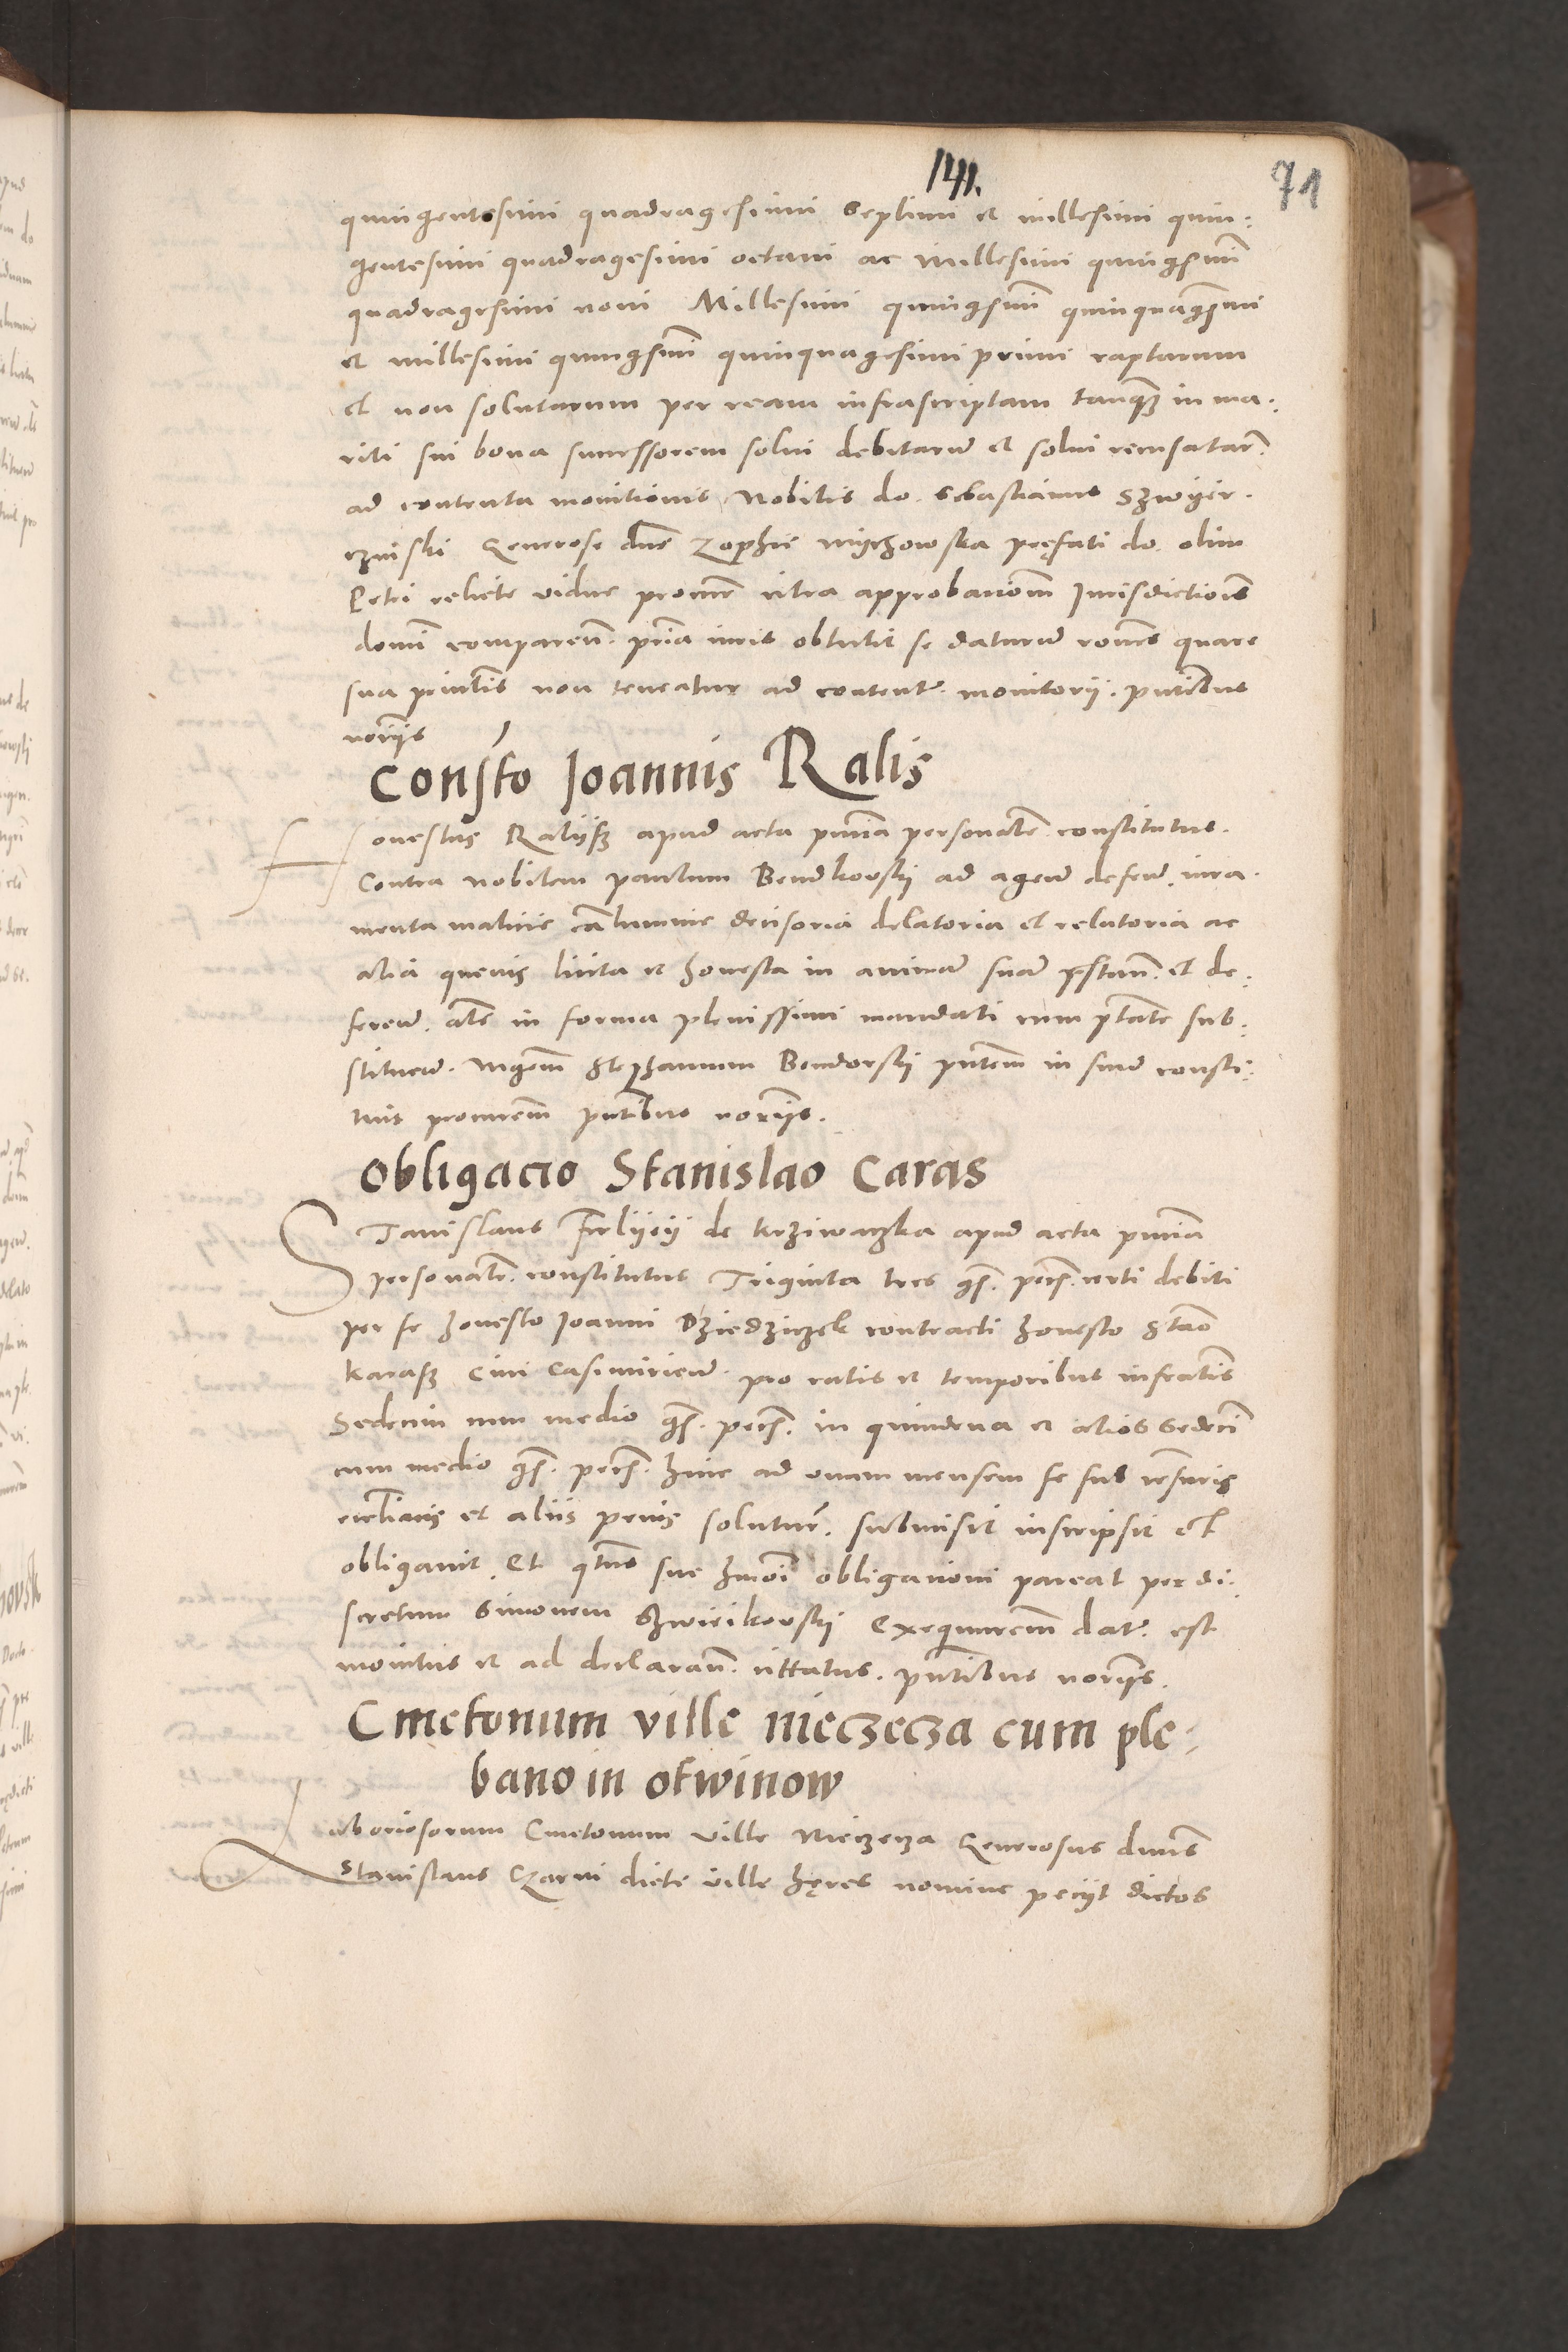 141.
71
quingentesimi quadragesimi septimi et millesimi quin-
gentesimi quadragesimi octavi ac Millesimi quingesimi
quadragesimi noni Millesimi quingesimi quinquagesimi
et millesimi quingesimi quinquagesimi primi raptarum
et non solutarum per ream infrascriptam tanq̃ in ma-
riti sui bona successorem solui debitarũ et solui recusatar.
ad contenta monitionis Nobilis do. Sebastianus Szwyer-
czinski Generose dne Zophie Mijschowska pręfati do. olim
Petri relicte vidue procur citra approbacionem Jurisdictionis
domini comparen. pñia iuris obtulit se daturũ rones quare
sua principalis non teneatur ad content. monitorij. pñtibus
norijs
Consto Joannis Ralis
Honestus Ralijsz apud acta pñia personaltr. constitutus.
Contra nobilem paulum Bendkovskij ad agend defend. iura-
menta malicie calumnie decisoria delatoria et relatoria ac
alia quevis licita et honesta in animã suã pstand. et de-
ferend. als in forma plenissimi mandati cum ptate sub-
stituend. Mgrm Stephanum Bendorskij pñtem in suũ consti-
tuit procurem pñtibus norijs.
Obligacio Stanislao Caras
Stanislaus Frlijeij de krziwaczka apud acta pñia
personaltr. constitutus Triginta tres gs. pecs. certi debiti
per se honesto Joanni Dziedziczek contracti honesto Stao
karasz Civi Casimirien. pro ratis et temporibus infractis
Sedecim cum medio gs. pecs. in quindena et alios sedeci
cum medio gs. pecs. hinc ad unam mensem se sub censuris
eccliacis et aliis penis soluturũ. submisit inscripsit et
obligavit. Et qtus sue hmoi obligacioni pareat per di-
scretum Simonem Szwieikovskij Exequurem datr. est
monitus et ad declarand. citatus. pñtibus norijs.
Cmetonum ville nieczecza cum ple-
bano in otwinow
Laboriosorum Cmetonum ville Nieczecza Generosus dnus
Stanislaus Czarni dicte ville hęres nomine pecijt dictos